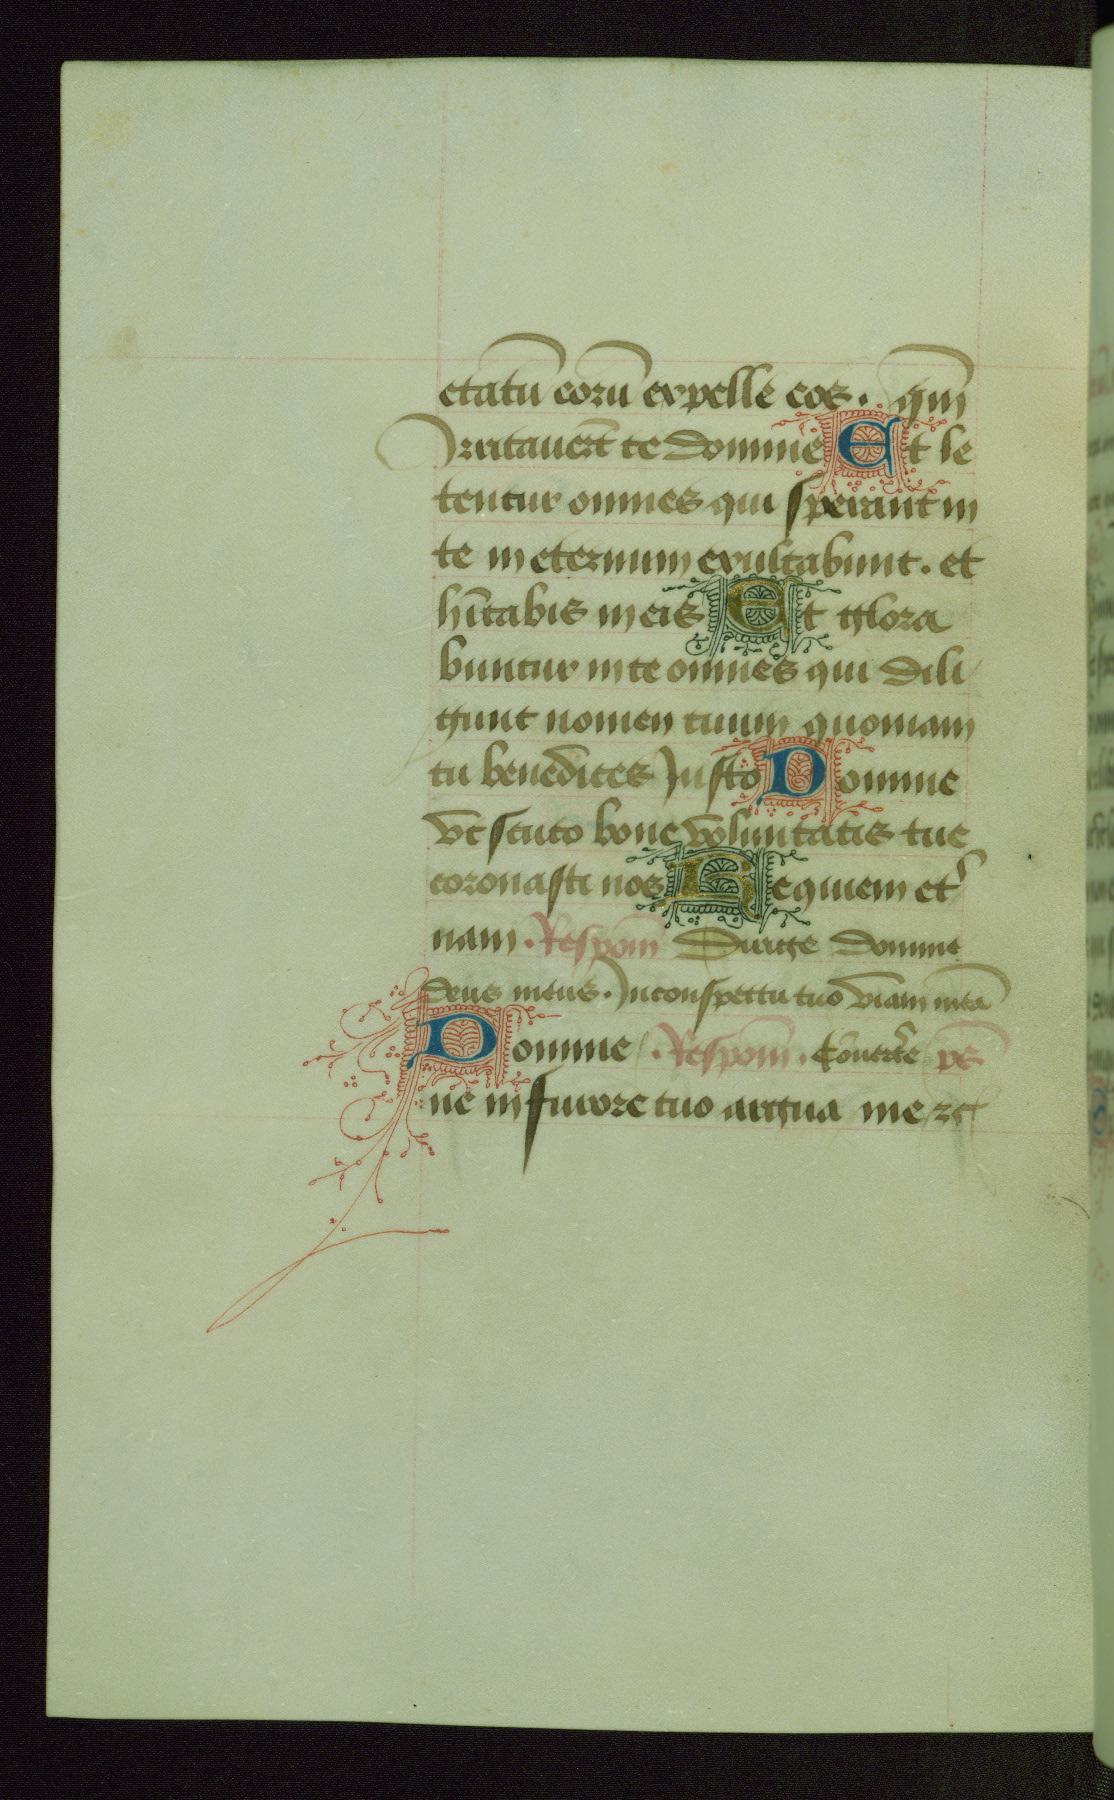 etatū eorū expelle eos. qm̄
Irritauer̄t te domine Et le
tentur omnes qui sperant in
te in eternum exultabunt. et
hītabis in eis Et glora
buntur in te omnes qui dili
gunt nomen tuum quoniam
tu benedices Justo Domine
vt scuto bone voluntatis tue
coronasti nos Requiem et
nam. Responı̄ Dirige domine
deus meus. In conspectu tuo viam meā
Domine. Responı̄. Conuertere ps̄
ne in furore tuo argua me